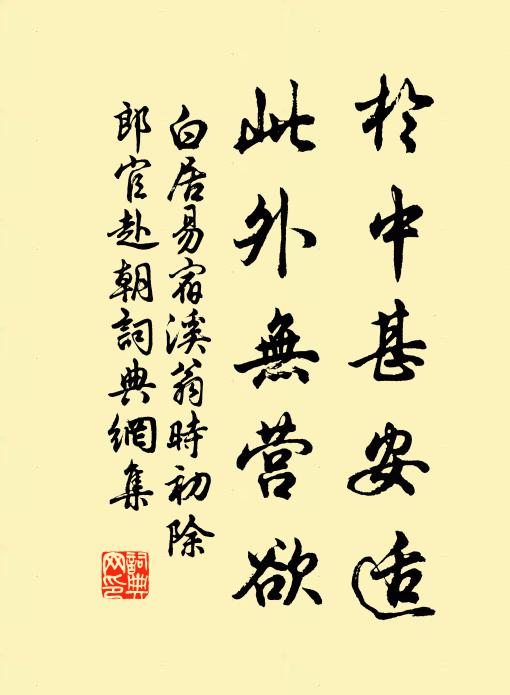 於中甚安适
此外無营欲
白居易宿溪翁時初除
郎官赴朝詞典網集
詞典网印